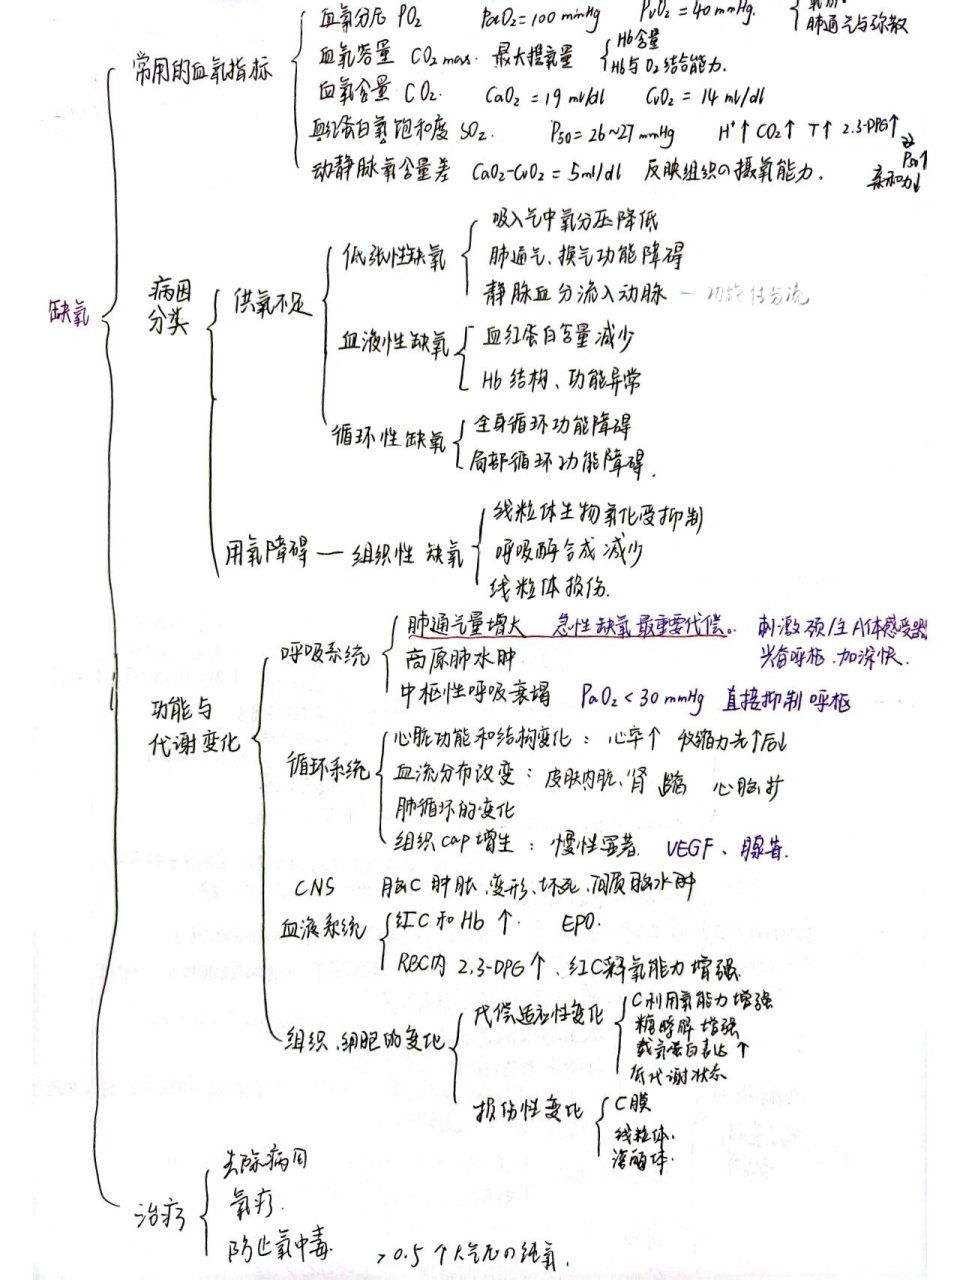 血氧分压 PO₂ PaO₂=100mmHg PvO₂=40mmHg.
肺通气与弥散
常用的血氧指标
血氧容量 CO₂max. 最大携氧量
Hb含量
Hb与O₂结合能力.
血氧含量 CO₂. CaO₂=19ml/dl CvO₂=14ml/dl
血红蛋白氧饱和度 SO₂. P50=26~27mmHg H⁺↑ CO₂↑ T↑ 2.3-DPG↑
P50↑
亲和力↓
动静脉氧含量差 CaO₂-CvO₂=5ml/dl 反映组织の摄氧能力.
缺氧
病因
分类
供氧不足
低张性缺氧
吸入气中氧分压降低
肺通气、换气功能障碍
静脉血分流入动脉 — 功能性分流
血液性缺氧
血红蛋白含量减少
Hb结构、功能异常
循环性缺氧
全身循环功能障碍
局部循环功能障碍.
用氧障碍 — 组织性缺氧
线粒体生物氧化受抑制
呼吸酶合成减少
线粒体损伤.
功能与
代谢变化
呼吸系统
肺通气量增大 急性缺氧最重要代偿. 刺激颈/主A体感受器
兴奋呼枢.加深快.
高原肺水肿
中枢性呼吸衰竭 PaO₂<30mmHg 直接抑制呼枢
循环系统
心脏功能和结构变化: 心率↑ 收缩力先↑后↓
血流分布改变: 皮肤内脏、肾 心脑
肺循环的变化
组织cap增生: 慢性显著. VEGF、腺苷.
CNS 脑C肿胀、变形、坏死、间质脑水肿
血液系统
红C和Hb↑. EPO.
RBC内2.3-DPG↑、红C释氧能力增强
组织、细胞的变化
代偿适应性变化
C利用氧能力增强
糖酵解增强
载氧蛋白表达↑
低代谢状态
损伤性变化
C膜
线粒体.
溶酶体.
治疗
去除病因
氧疗.
防止氧中毒. >0.5个大气压の纯氧.